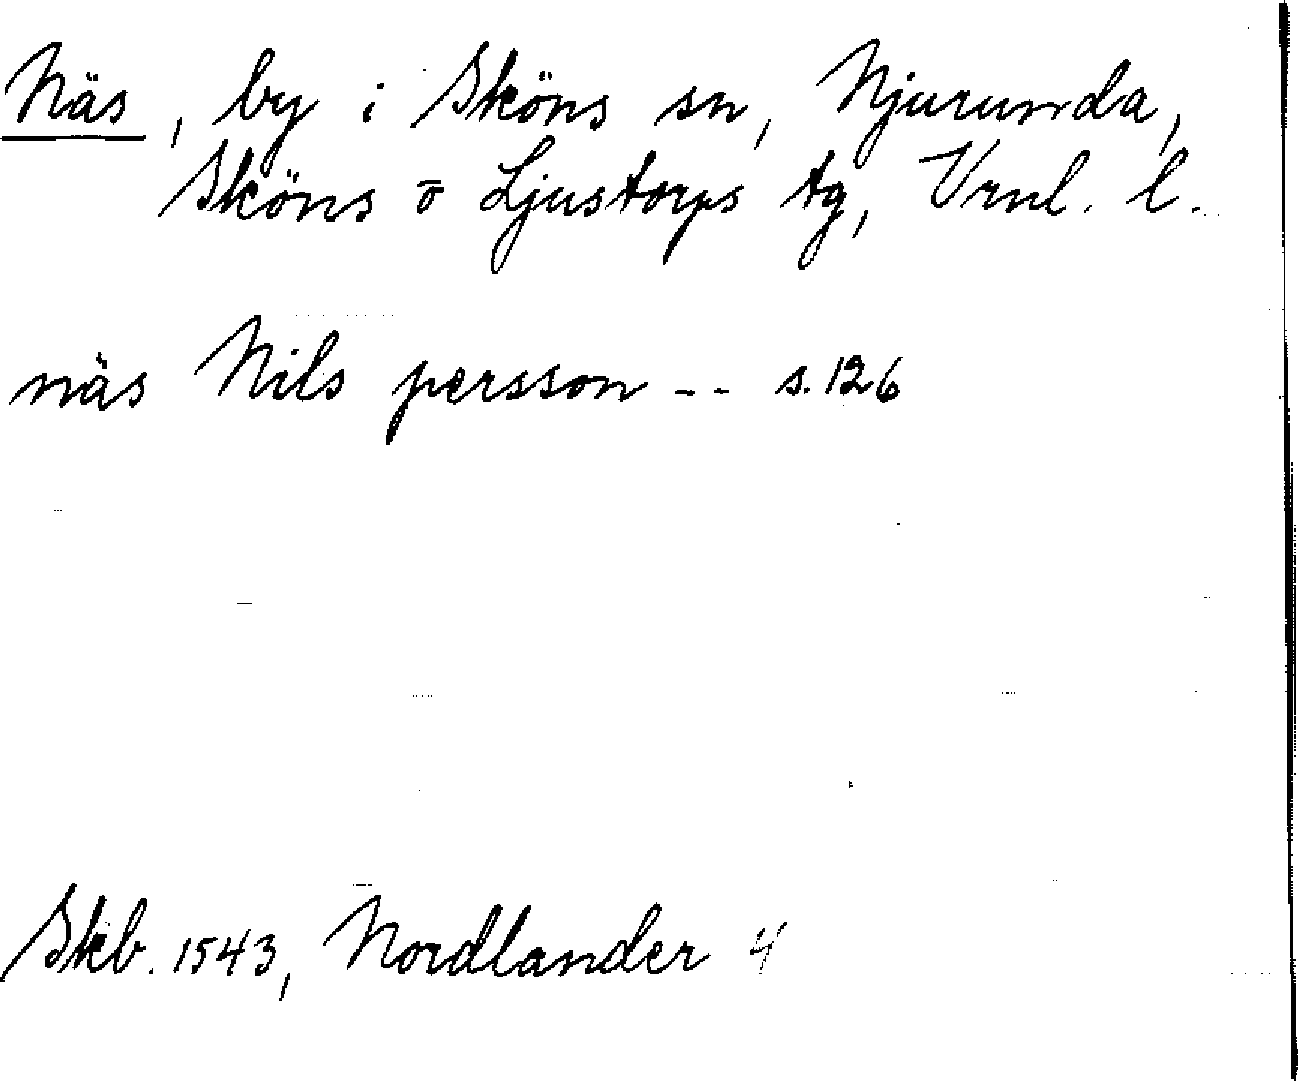 Näs, by i Sköns sn, Njurunda,
Sköns o Ljustorps tg, Vrnl. l.
näs Nils persson -- s. 126
Skb. 1543, Nordlander 4